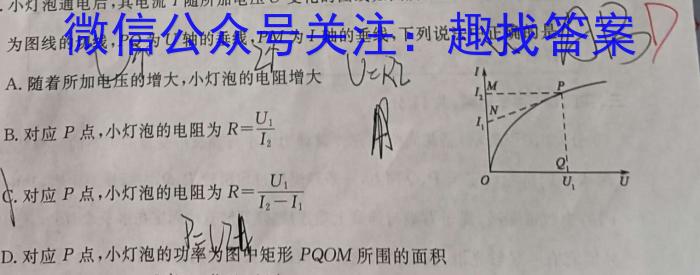 小灯泡通电后,其电流 I 随所加电压 U 变化的图线
微信公众号关注：趣找答案
为图线的切线,PQ 为 U 轴的垂线,PM 为 I 轴的垂线,下列说法
A. 随着所加电压的增大,小灯泡的电阻增大
U=RI
B. 对应 P 点,小灯泡的电阻为 R=U₁/I₂
C. 对应 P 点,小灯泡的电阻为 R=U₁/(I₂-I₁)
D. 对应 P 点,小灯泡的功率为图中矩形 PQOM 所围的面积
I
I₂ M P
I₁ N
O Q U₁ U